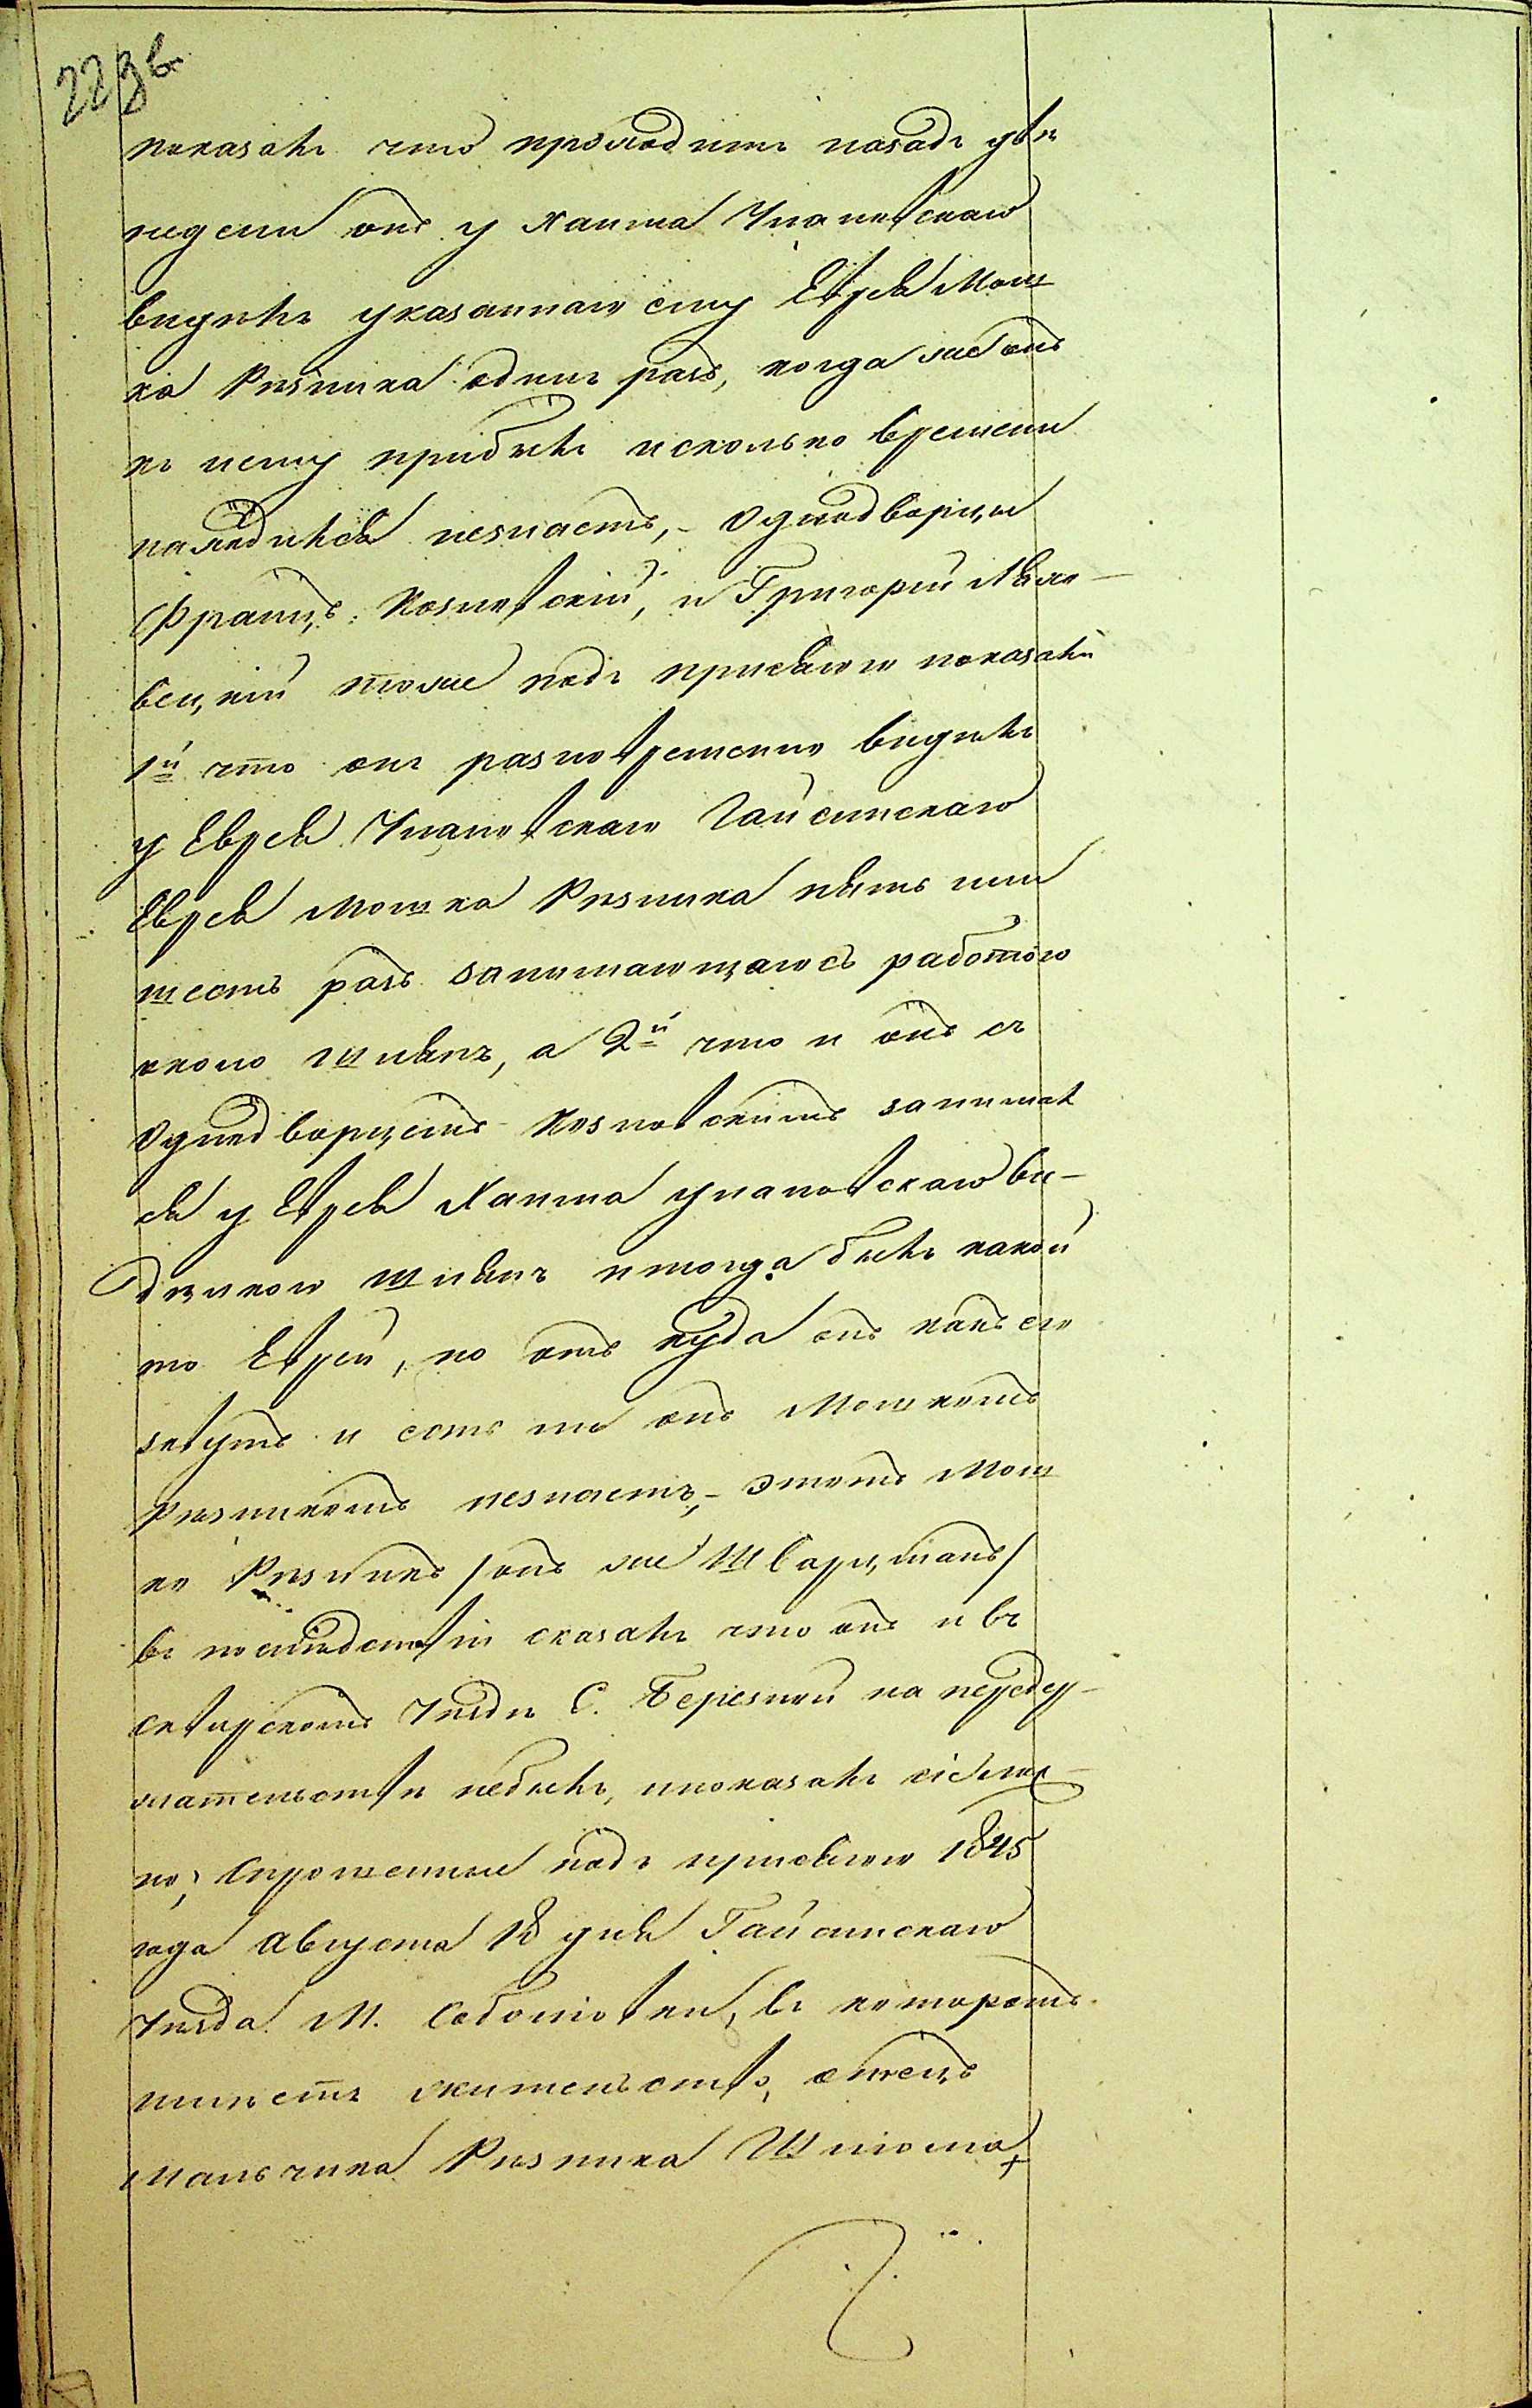 223 об
показалъ что проходитъ назадъ двѣ
недели онъ у Хаима Унановскаго
видѣлъ указаннаго ему Еврея Мош
ка Резника одинъ разъ, когда же онъ
къ нему прибылъ и сколько времени
находился незнаетъ, - Однодворцы
Францъ Козловскій, и Григорій Ляхо-
вецкій тоже подъ присягою показали
1й что онъ разновременно видѣлъ
у Еврея Унановскаго Гайсинскаго
Еврея Мошка Резника пять или
шесть разъ занимающагося работою
около шляпъ, а 2й что и онъ съ
Однодворцемъ Козловскимъ занимал
ся у Еврея Хаима Унановскаго вы-
дѣлкою шляпъ и тогда былъ какой
то Еврей, но отъ куда онъ какъ его
зовутъ и есть ли онъ Мошкомъ
Резникомъ незнаетъ, - Этотъ Мош
ко Резникъ /онъ же Шварцманъ/
въ последствіи сказалъ что онъ и въ
Сквирскомъ Уѣздѣ С. Березной на передер-
жательствѣ небылъ, и показалъ сіе лож-
но; Спрошенные подъ присягою 1845
года Августа 18 дня Гайсинскаго
Уѣзда М. Соболювки, въ которомъ
имѣетъ жительство, отецъ
мальчика Резника Шлюма,